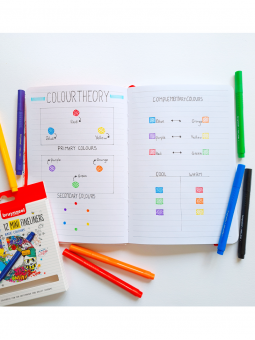 COLOUR THEORY
Red
Blue
Yellow
PRIMARY COLOURS
Purple
Orange
Green
SECONDARY COLOURS
COMPLEMENTARY COLOURS
Blue Orange
Purple Yellow
Red Green
COOL WARM
bruynzeel
12 MINI FINELINERS